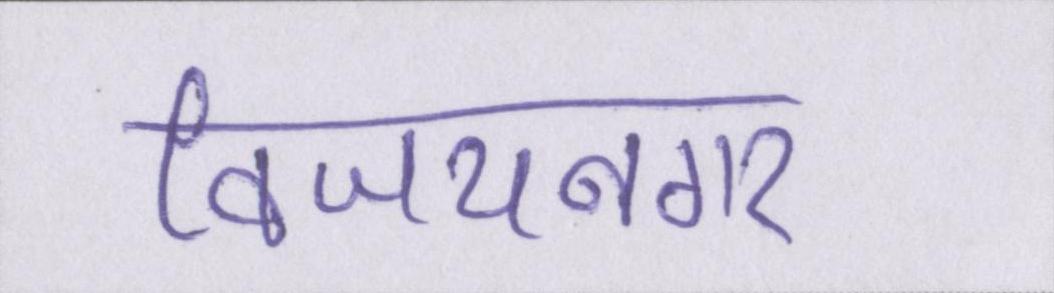 विजयनगर